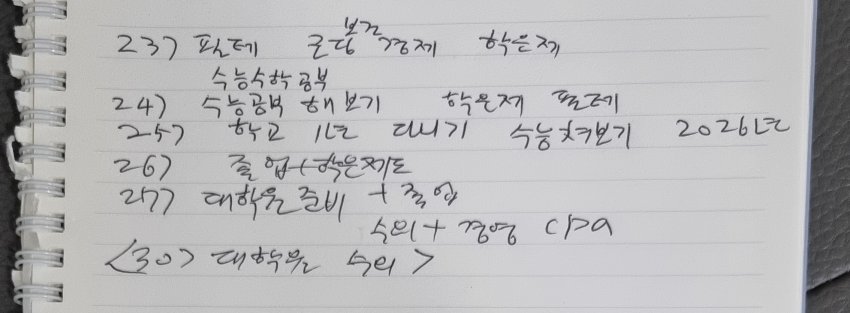 보건
23> 필테 로컬 경제 학은제
수능수학공부
24> 수능공부 해보기 학은제 필테
25> 학교 1년 다니기 수능쳐보기 2026년
26> 졸업+학은제도
27> 대학원준비 + 졸업
수의+ 경영 cpa
<30> 대학원 수의>